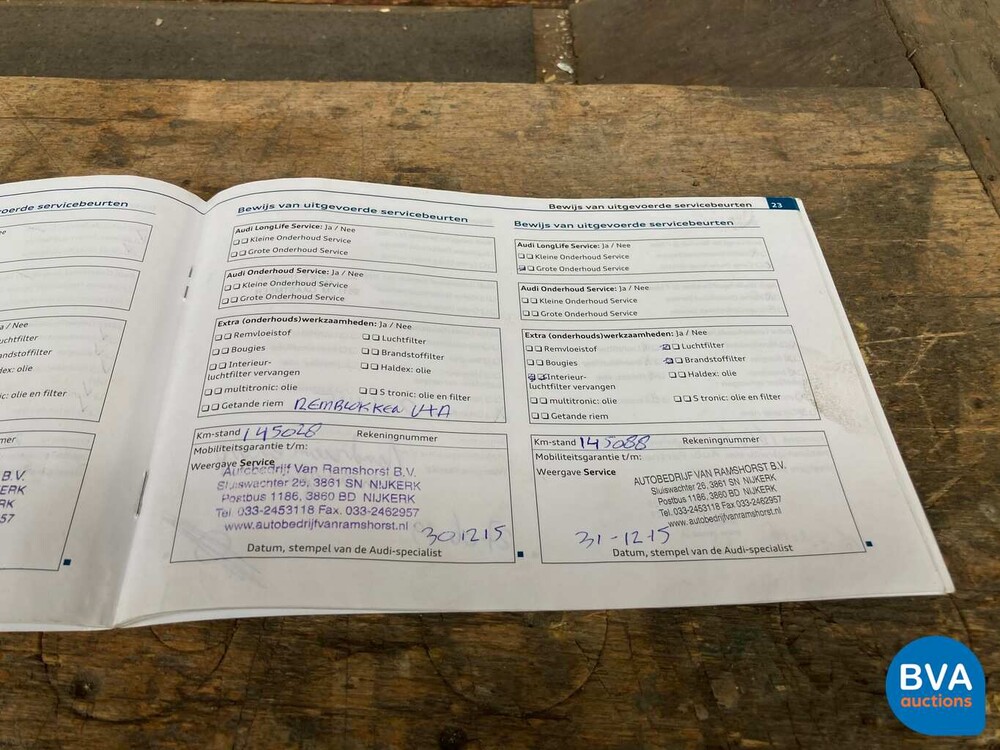 oerde servicebeurten
a / Nee
uchtfilter
andstoffilter
dex: olie
ronic: olie en filter
mer
B.V.
ERK
RK
57
Bewijs van uitgevoerde servicebeurten
Audi LongLife Service: Ja / Nee
Kleine Onderhoud Service
Grote Onderhoud Service
Audi Onderhoud Service: Ja / Nee
Kleine Onderhoud Service
Grote Onderhoud Service
Extra (onderhouds)werkzaamheden: Ja / Nee
Remvloeistof
Luchtfilter
Bougies
Brandstoffilter
Interieur-
luchtfilter vervangen
Haldex: olie
multitronic: olie
S tronic: olie en filter
Getande riem REMBLOKKEN V+A
Km-stand 145028 Rekeningnummer
Mobiliteitsgarantie t/m:
Weergave Service
Autobedrijf Van Ramshorst B.V.
Sluiswachter 26, 3861 SN NIJKERK
Postbus 1186, 3860 BD NIJKERK
Tel. 033-2453118 Fax. 033-2462957
www.autobedrijfvanramshorst.nl
301215
Datum, stempel van de Audi-specialist
Bewijs van uitgevoerde servicebeurten 23
Bewijs van uitgevoerde servicebeurten
Audi LongLife Service: Ja / Nee
Kleine Onderhoud Service
Grote Onderhoud Service
Audi Onderhoud Service: Ja / Nee
Kleine Onderhoud Service
Grote Onderhoud Service
Extra (onderhouds)werkzaamheden: Ja / Nee
Remvloeistof
Luchtfilter
Bougies
Brandstoffilter
Interieur-
luchtfilter vervangen
Haldex: olie
multitronic: olie
S tronic: olie en filter
Getande riem
Km-stand 145088 Rekeningnummer
Mobiliteitsgarantie t/m:
Weergave Service
AUTOBEDRIJF VAN RAMSHORST B.V.
Sluiswachter 26, 3861 SN NIJKERK
Postbus 1186, 3860 BD NIJKERK
Tel. 033-2453118 Fax 033-2462957
www.autobedrijfvanramshorst.nl
31-12-15
Datum, stempel van de Audi-specialist
BVA
auctions